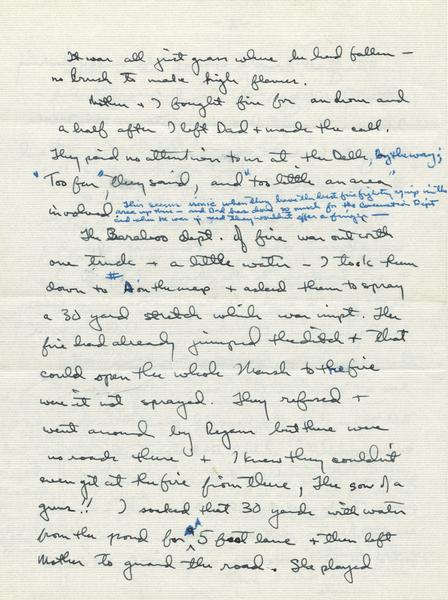 It was all just grass where he had fallen —
no brush to make high flames.
Mother + I fought fire for an hour and
a half after I left Dad + made the call.
They paid no attention to us at the Dells, by the way;
"Too far", they said, and "too little an area"
involved. This seems ironic when they have the best fire fighting equip in the
area up there — and Dad has done so much for the Conservation Dept
and when he was in need they wouldn't offer a finger —
The Baraboo dept. of fire was out with
one truck + a little water — I took them
down to #A on the map + asked them to spray
a 30 yard stretch which was impt. The
fire had already jumped the ditch + that
could open the whole Marsh to the fire
were it not sprayed. They refused +
went around by but there were
no roads there + I knew they couldn't
even get at the fire from there, The son of a
guns!! I soaked that 30 yards with water
from the pond for A 5 foot lane + then left
Mother to guard the road. She played